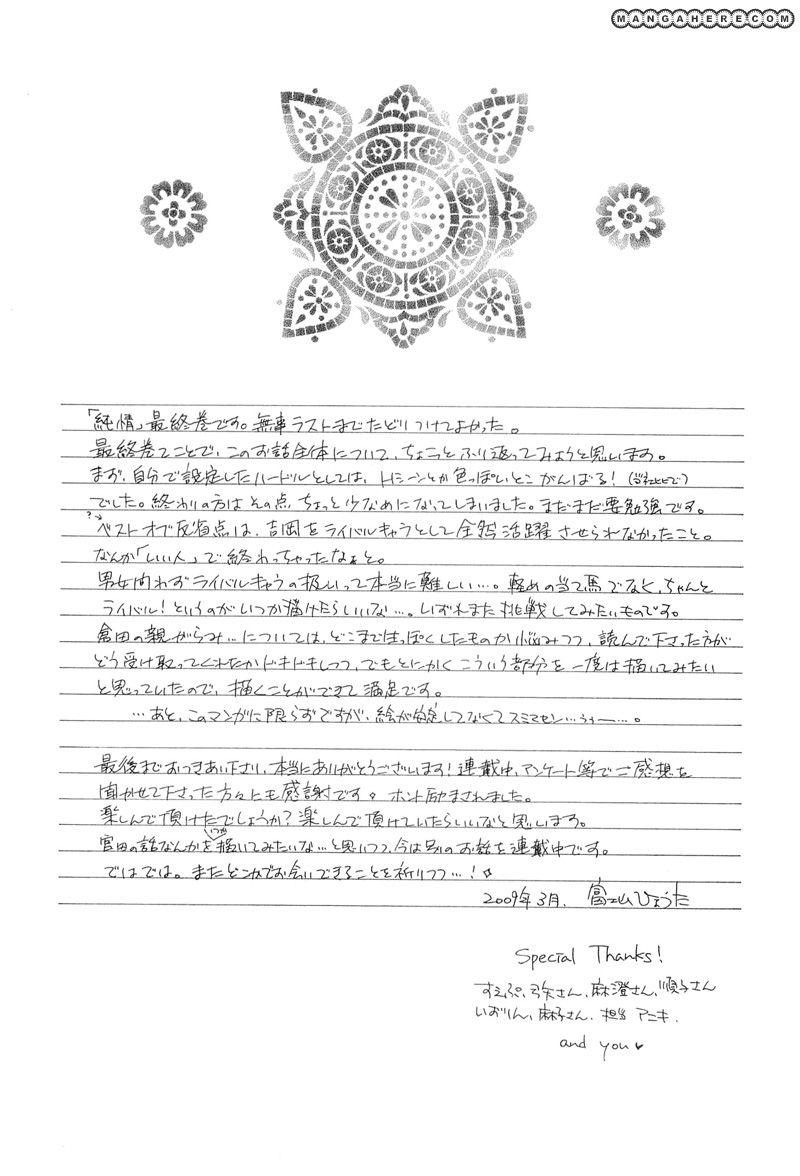 MANGAHERE.COM
「純情」最終巻です。無事ラストまでたどりつけてよかった。
最終巻てことで、このお話全体について、ちょこっとふり返ってみようと思います。
まず、自分で設定したハードルとしては、Hシーンとか色っぽいとこがんばる!(当社比で)
でした。終わりの方はその点、ちょっと少なめになってしまいました。まだまだ要勉強です。
?→
ベストオブ反省点は、吉岡をライバルキャラとして全然活躍させられなかったこと。
なんか「いい人」で終わっちゃったなぁと。
男女問わずライバルキャラの扱いって本当に難しい…。軽めの当て馬でなく、ちゃんと
ライバル!というのがいつか描けたらいいな…。いずれまた挑戦してみたいものです。
倉田の親がらみ…については、どこまでほっぽくしたものか悩みつつ、読んで下さった方が
どう受け取ってくれたかドキドキしつつ、でもとにかくこういう部分を一度は描いてみたい
と思っていたので、描くことができて満足です。
…あと、このマンガに限らずですが、絵が安定してなくてスミマセン…うぅー…。
最後までおつきあい下さり、本当にありがとうございます!連載中、アンケート等でご感想を
聞かせて下さった方々にも感謝です。ホント励まされました。
楽しんで頂けたでしょうか?楽しんで頂けていたらいいなと思います。
宮田の話なんかをいつか描いてみたいな…と思いつつ、今は別のお話を連載中です。
ではでは。またどこかでお会いできることを祈りつつ…!☆
2009年3月. 富士山ひょうた
Special Thanks!
すえぷ、弓矢さん、麻澄さん、順子さん
いおりん、麻子さん、担当 アニキ.
and you♥